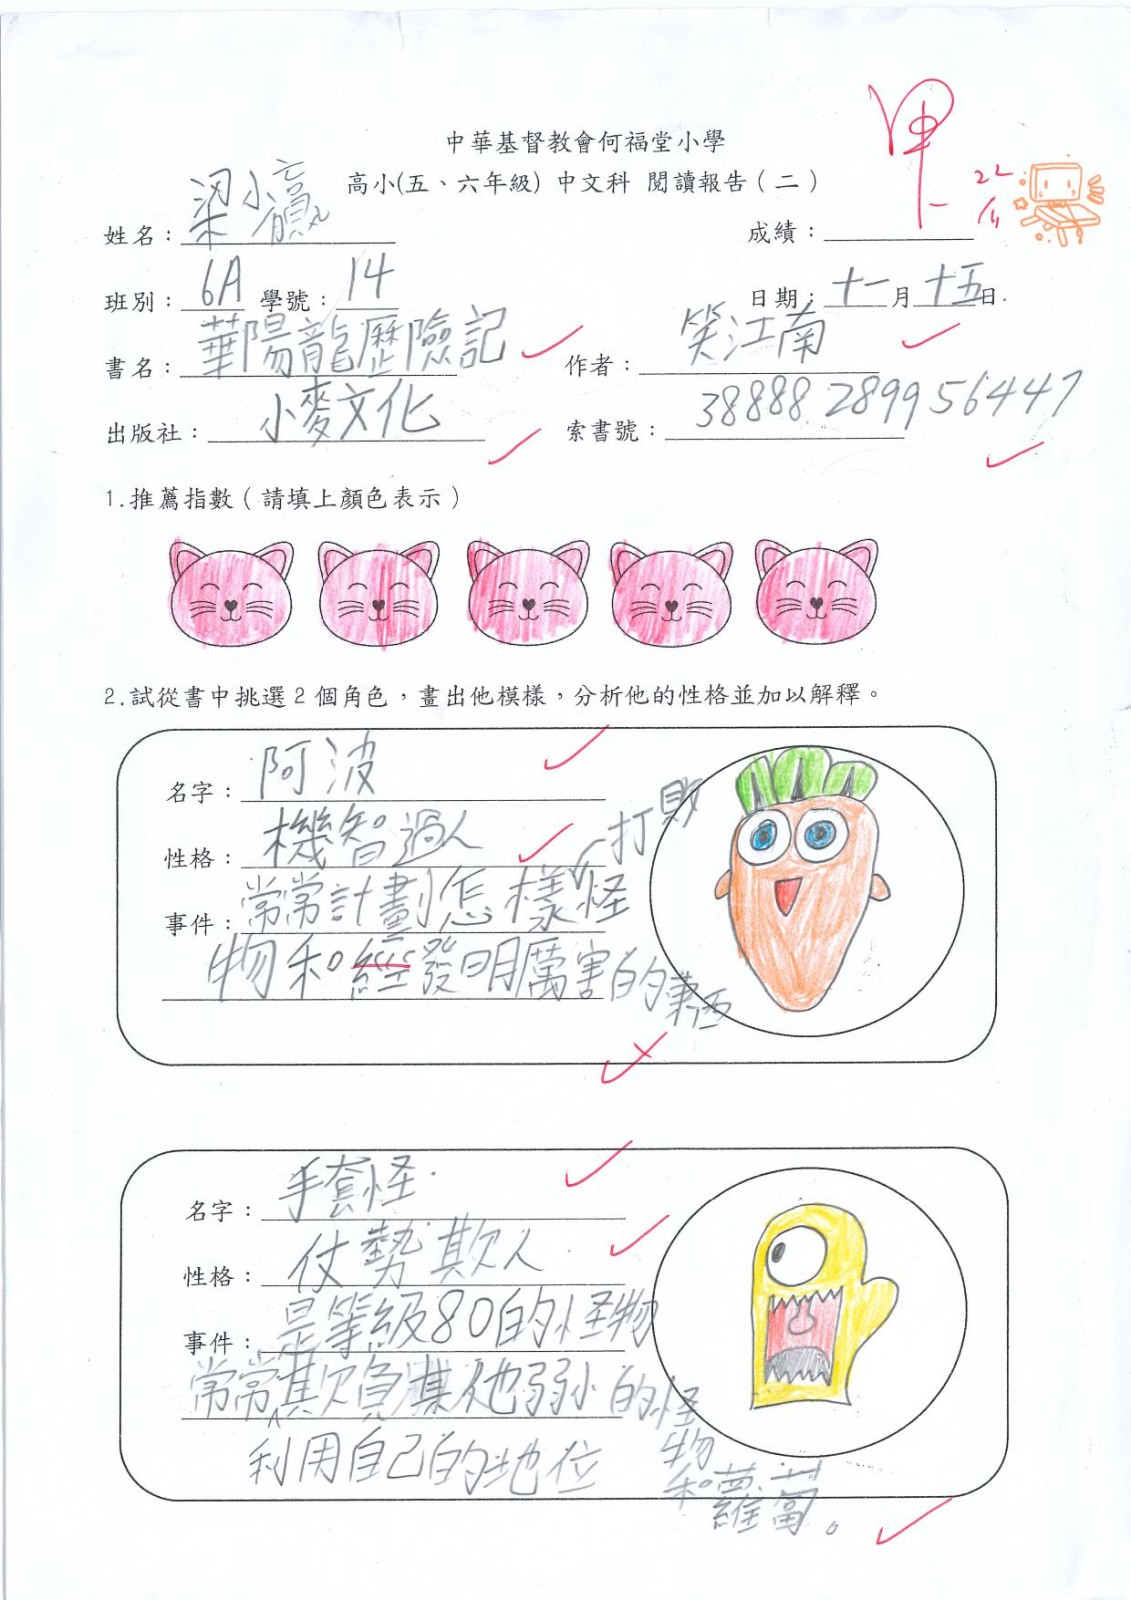 中華基督教會何福堂小學
高小(五、六年級) 中文科 閱讀報告(二)
姓名：梁小贏
成績：
22/11
班別：6A 學號：14
日期：十一月十五日.
書名：華陽龍歷險記
作者：笑江南
出版社：小麥文化
索書號：38888 2899 56447
1.推薦指數(請填上顏色表示)
2.試從書中挑選2個角色，畫出他模樣，分析他的性格並加以解釋。
名字：阿波
性格：機智過人
打敗
事件：常常計劃怎樣怪
物和經發明厲害的東西
名字：手套怪.
性格：仗勢欺人.
事件：是等級80的怪物
常常欺負其他弱小的怪
物
利用自己的地位
和蘿蔔。